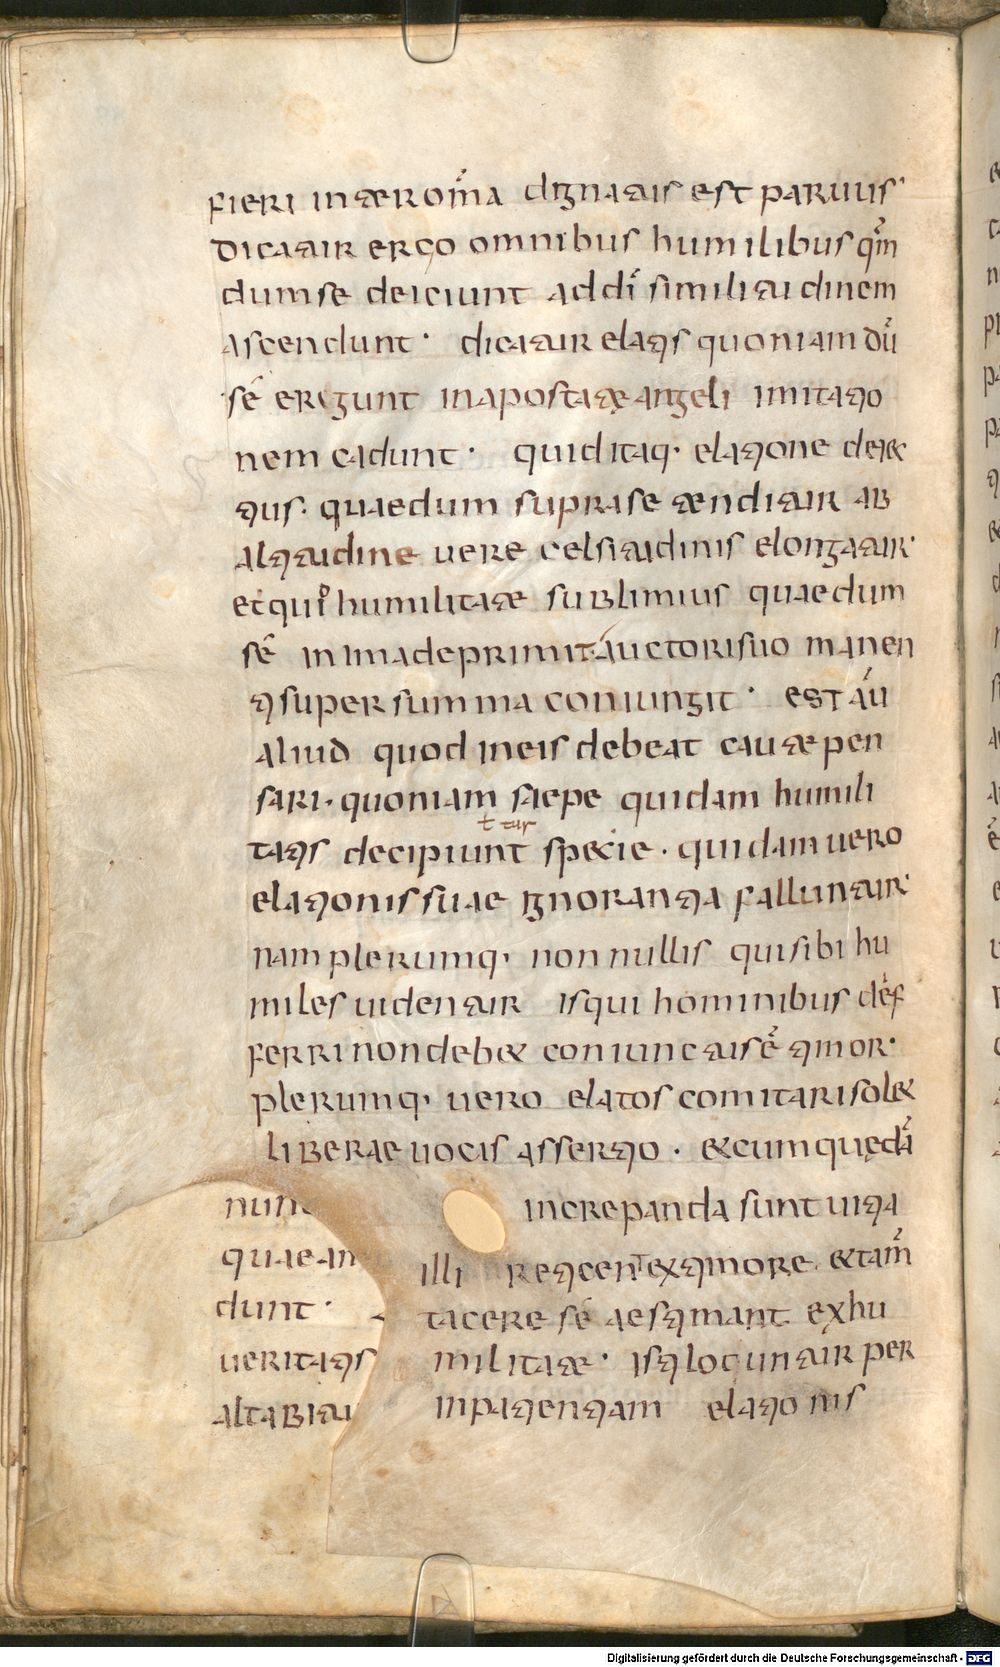 fieri inter om̅a dignatus est paruus·
dicatur ergo omnibus humilibus qm̅
dum se deiciunt ad di̅ similitudinem
ascendunt· dicatur elatis quoniam du̅
se erigunt in apostatae angeli imitatio
nem cadunt· quid itaq· elatione deiec
tius· quae dum supra se tenditur ab
altitudine uere celsitudinis elongatur·
et qui humilitate sublimius quae dum
se in ima deprimit auctori suo manen
ti super summa coniungit· est au̅
aliud quod in eis debeat caute pen
sari· quoniam saepe quidam humili
ł tur
tatis decipiunt specie· quidam uero
elationis suae ignorantia falluntur·
nam plerumq· non nullis qui sibi hu
miles uidentur is qui hominibus def
ferri non debet coniunctus e̅ timor·
plerumq· uero elatos comitari solet
liberae uocis assertio· et cum quędā
nun increpanda sunt uitia
quae an illi reticent ex timore· et tam̅
dunt· tacere se aestimant ex hu
ueritatis militate· isti locuntur per
altabitu inpatientiam elationis
Digitalisierung gefördert durch die Deutsche Forschungsgemeinschaft - DFG